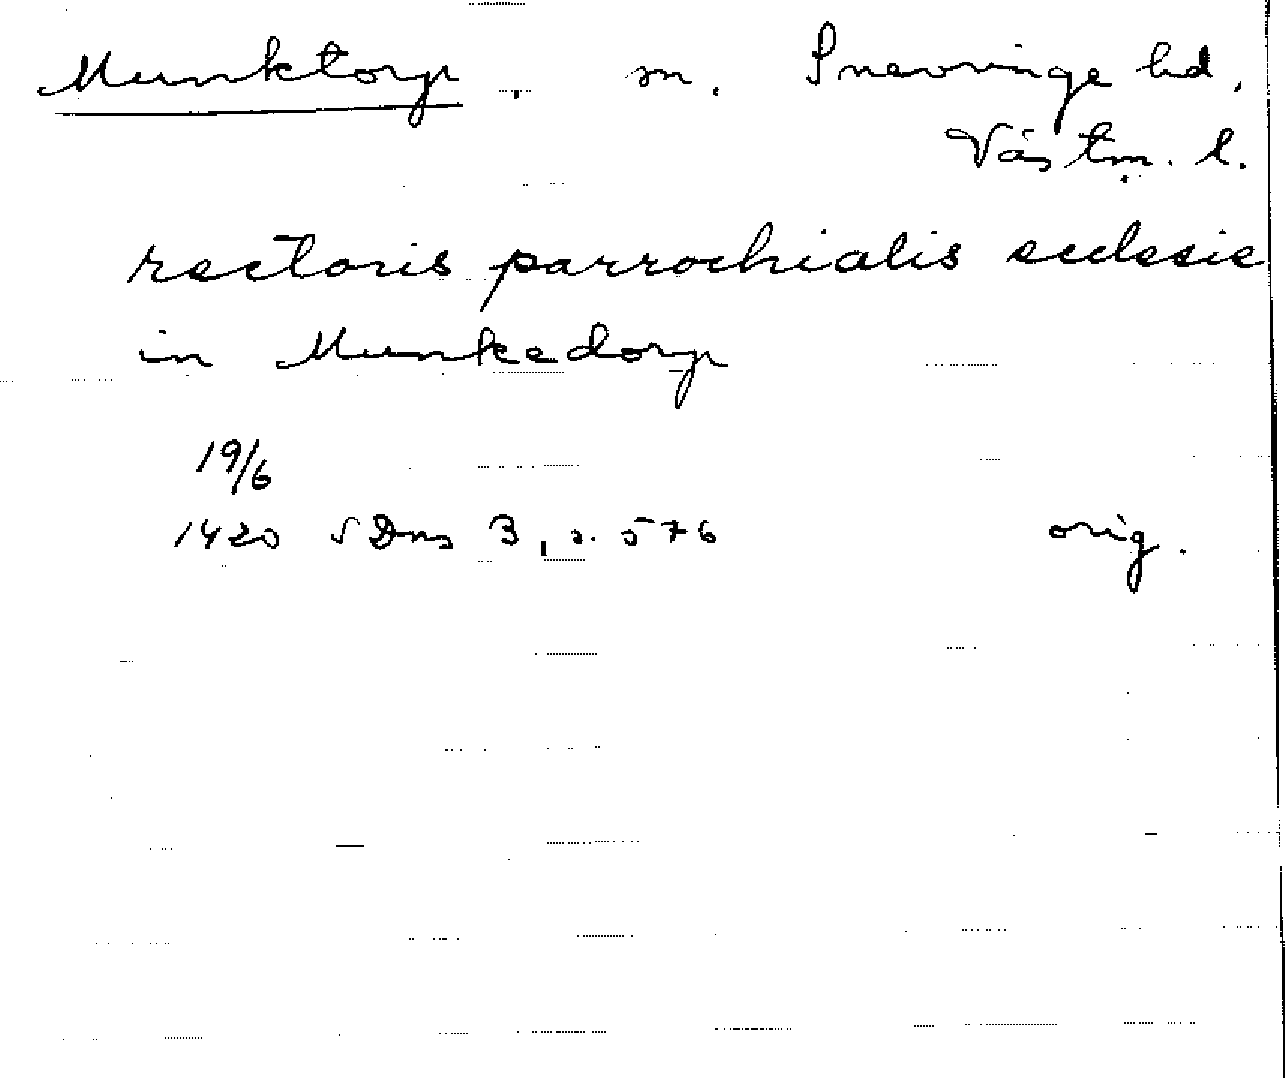 Munktorp, sn. Snevringe hd,
Västm. l.
rectoris parrochialis ecclesie
in Munkedorp
19/6
1420 SDns 3, s. 576 orig.